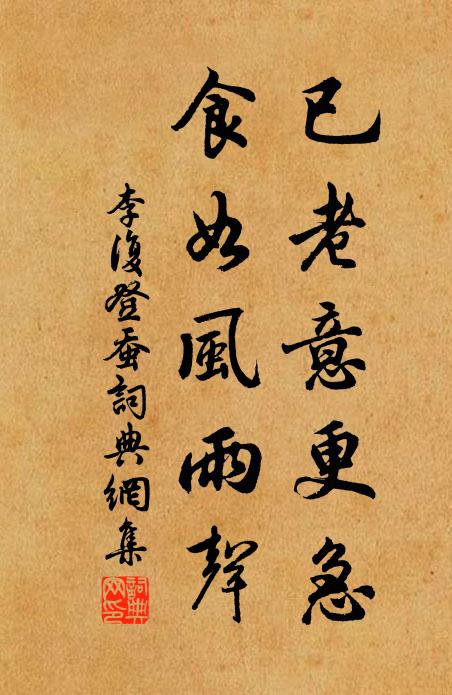 已老意更急
食如風雨聲
李復登蚕詞典網集
詞典網印